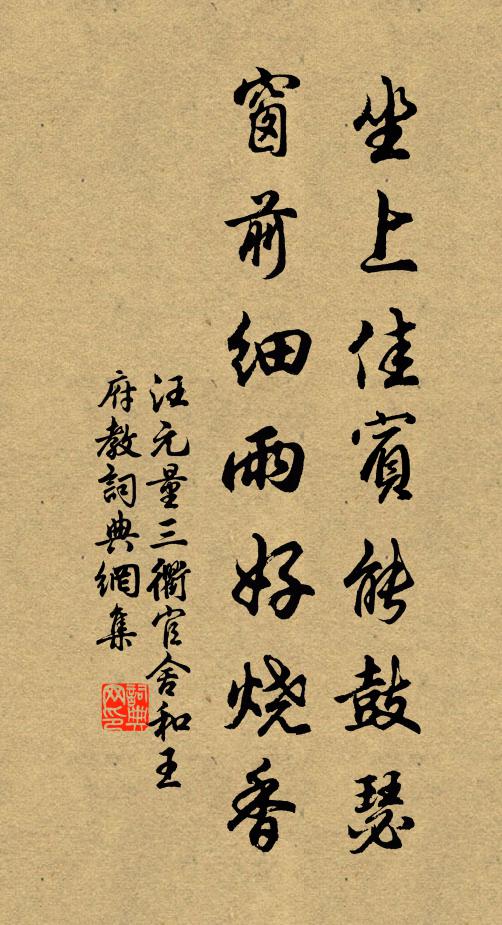 坐上佳賓能鼓瑟
窗前細雨好燒香
汪元量三衢官舍和王
府教詞典網集
詞典
网印